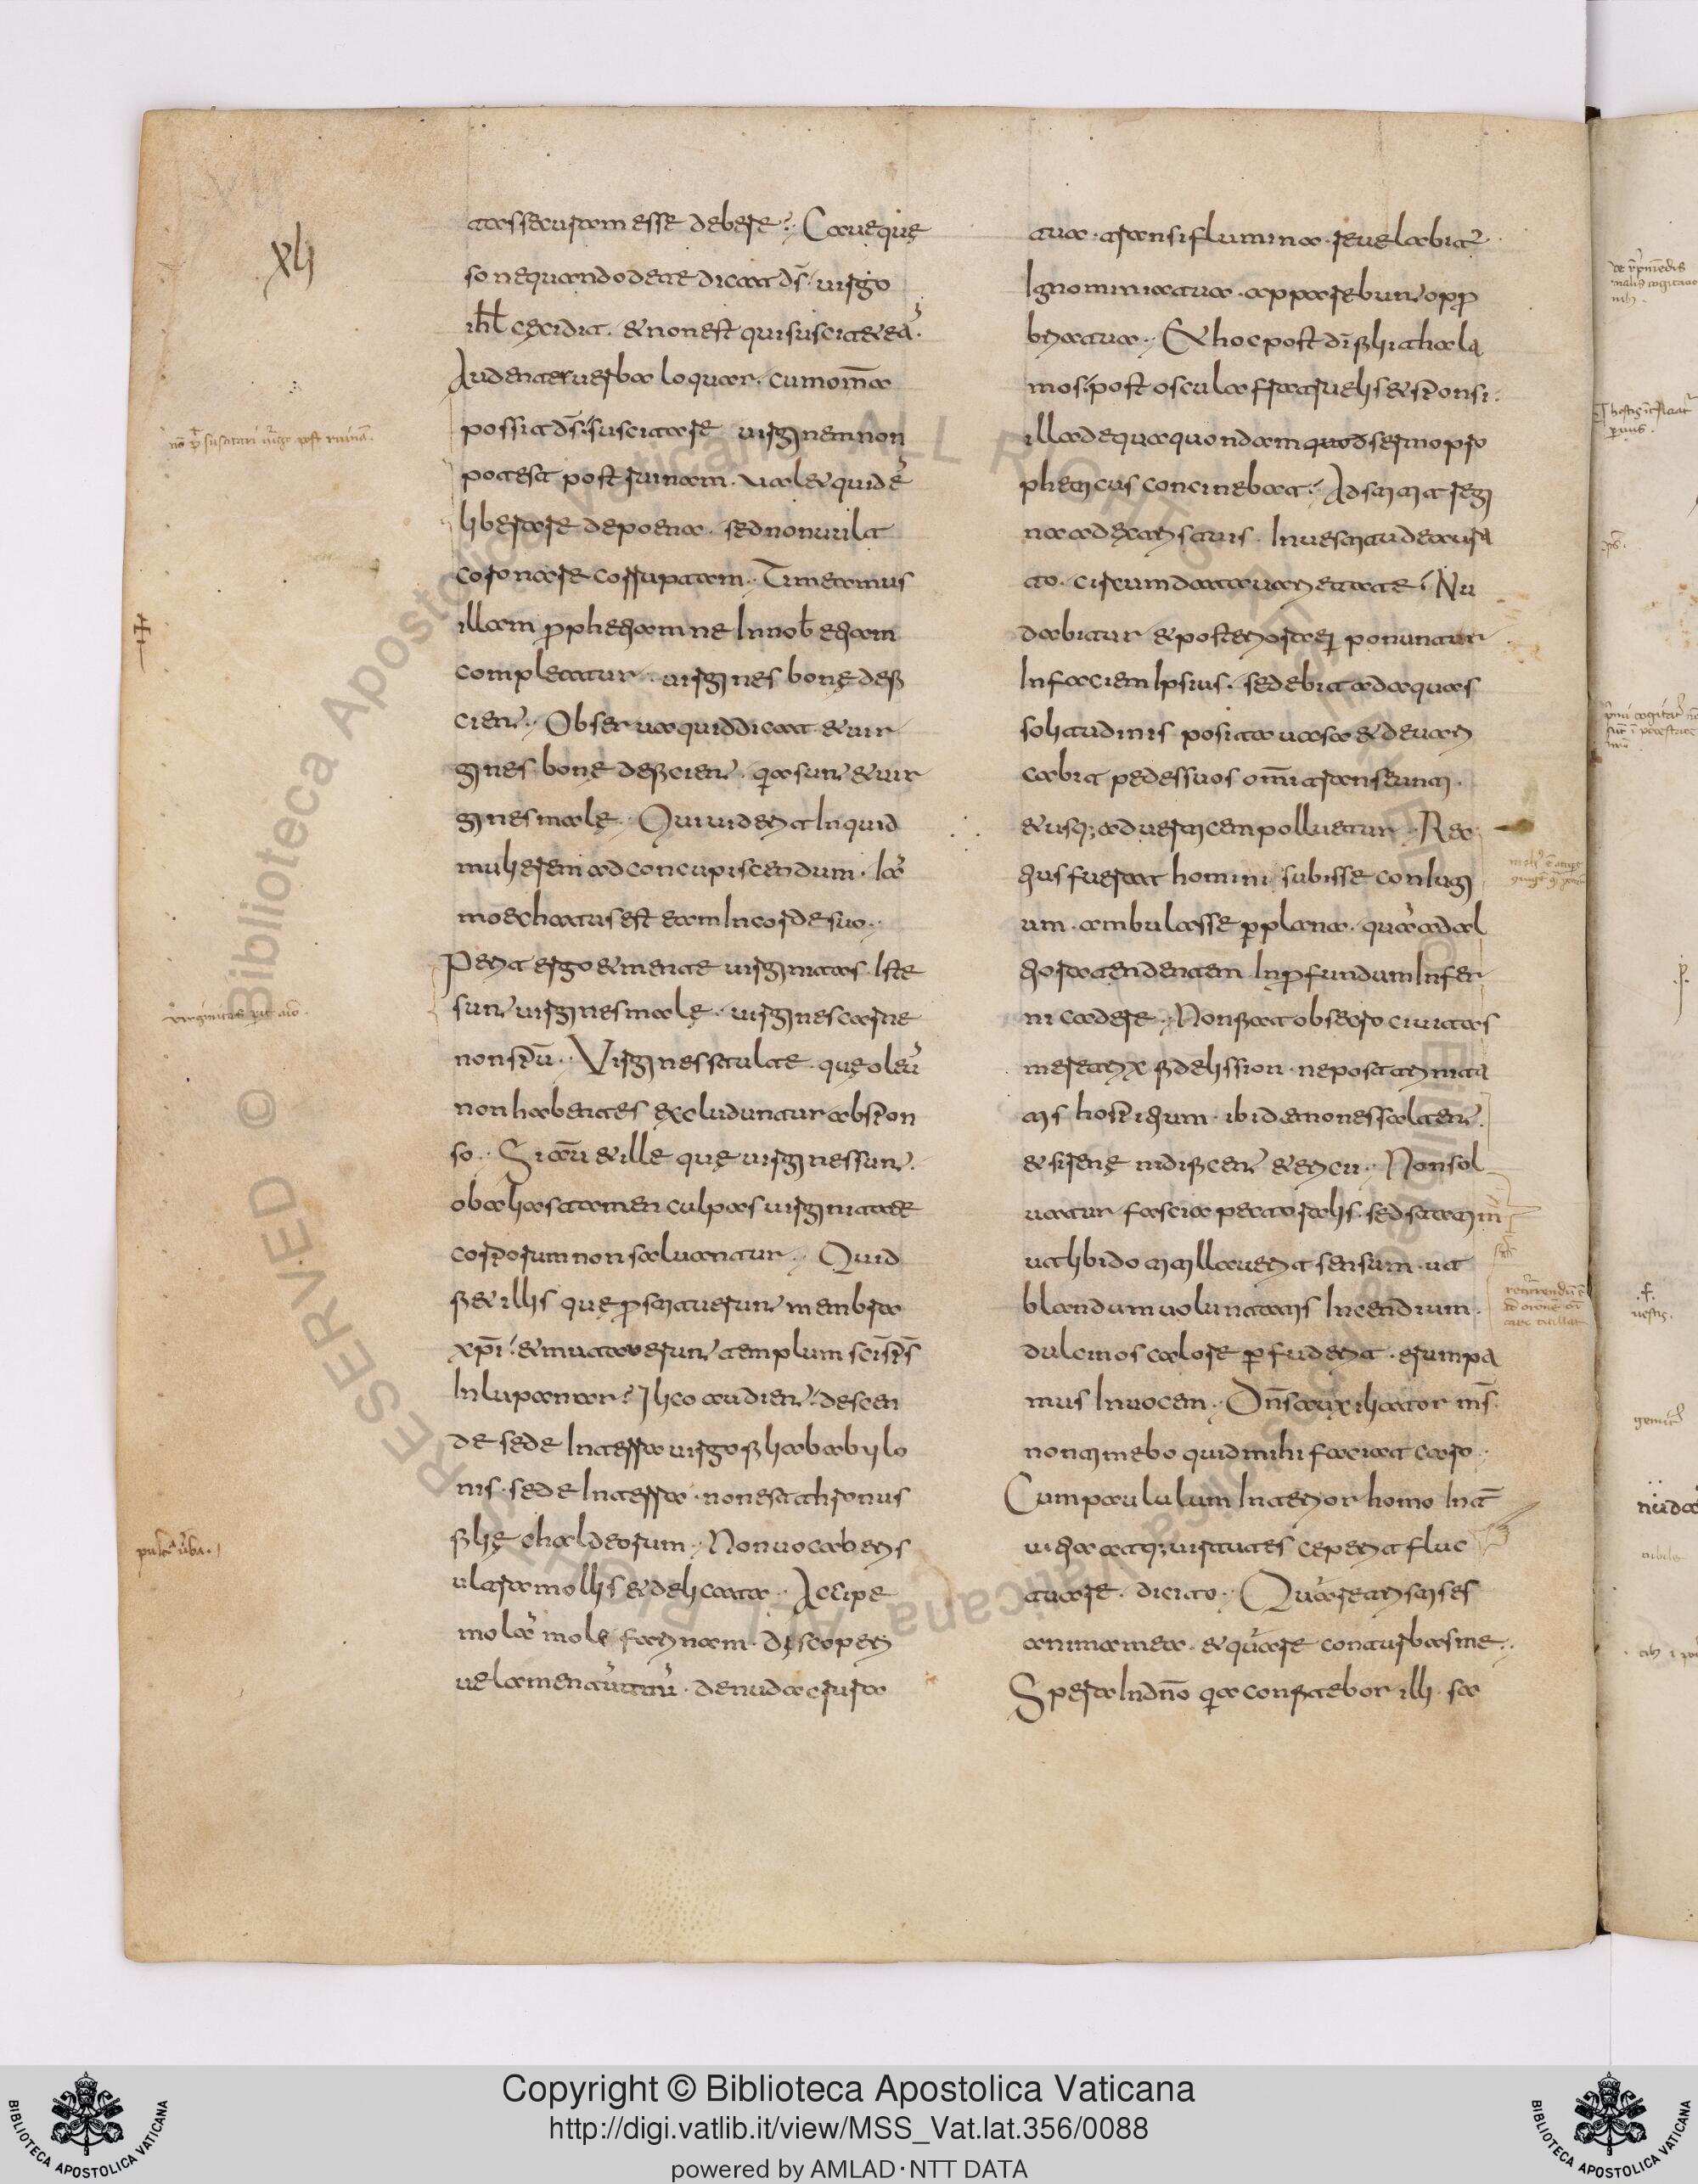 xlı
tas securam esse debere? Caue que
so ne quando de te dicat ds̄ · uirgo
ihl̄ cęcidit · & non est qui suscitet eā ·
Audenter uerba loquar · cum om̄a
possit ds̄ · suscitare uirginem non
potest post ruinam · ualet quidē
liberare de poena · sed non uult
coronare corruptam · Timeamus
illam p̄phetiam ne In nob̄ etiam
compleatur · uirgines bonę defi
cient · Obserua quid dicat & uir
gines bonę deficient · qia sunt & uir
gines malę · Qui uiderit Inquid
mulierem ad concupiscendum · Iā
moechatus est eam In corde suo ·
Perit ergo & mente uirginitas · Iste
sunt uirgines malę · uirgines carne
non sp̄u · Virgines stulte · quę oleū
non habentes excluduntur ab spon
so · Si aū & ille quę uirgines sunt ·
ob alias tamen culpas uirginitate
corporum non saluantur · Quid
fiet illis quę p̄stituerunt membra
xp̄i · & mutauerunt templum sc̄i sp̄s
In lupanar? Ilico audient · descen
de sede In terra uirgo filia babylo
nis · sede In terra · non est thronus
filię chaldeorum · Non uocaberis
ultra mollis & delicata · Accipe
molā mole farinam · discoperi
uelamentū tuū · denuda crura
tua · transi flumina · reuelabit̄
Ignominia tua · apparebunt opp
bria tua · Et hoc post dī filii thala
mos · post oscula fratruelis & sponsi ·
illa de qua quondam quod sermo pro
pheticus concinebat · Adstitit regi
na a dextris tuis · In uestitu deaura
to · circumdata uarietate · Nu
dabitur & posteriora ei ponuntur
In faciem Ipsius · sedebit ad aquas
solitudinis posita uasa & deuari
cabit pedes suos om̄i transeunti ·
& usq; ad uerticem polluetur · Rec
tius fuerat homini subisse coniugi
um · ambulasse p plana · quā ad al
tiora tendentem In p̄fundum Infer
ni cadere · Non fiat obsecro ciuitas
meretrix fidelis sion · ne post trinita
tis hospitium · ibi demones saltent ·
& sirenę nidificent & ericii · Non sol
uatur fascia pectoralis · sed statim
ut libido titillauerit sensum · ut
blandum uoluntatis Incendium ·
dulci nos calore p̄fuderit · erumpa
mus In uocem · Dn̄s auxiliator ms̄ ·
non timebo quid mihi faciat caro ·
Cum paululum Interior homo Int̄
uitia atq; uirtutes ceperit fluc
tuare · dicito · Quare tristis es
anima mea · & quare conturbas me ·
Spera In dn̄o qia confitebor illi · sa
Copyright © Biblioteca Apostolica Vaticana
http://digi.vatlib.it/view/MSS_Vat.lat.356/0088
powered by AMLAD·NTT DATA
BIBLIOTECA APOSTOLICA VATICANA
BIBLIOTECA APOSTOLICA VATICANA